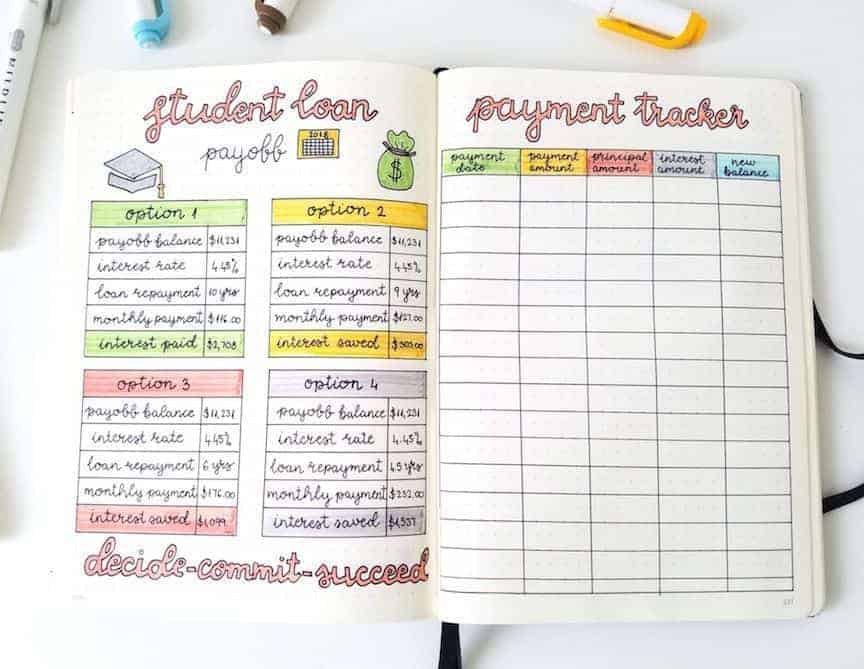 student loan
payoff
2018
$
option 1
payoff balance $11,231
interest rate 4.45%
loan repayment 10 yrs
monthly payment $116.00
interest paid $2,708
option 2
payoff balance $11,231
interest rate 4.45%
loan repayment 9 yrs
monthly payment $127.00
interest saved
option 3
payoff balance $11,231
interest rate 4.45%
loan repayment 6 yrs
monthly payment $176.00
interest saved $1,099
option 4
payoff balance $11,231
interest rate 4.45%
loan repayment 4.5 yrs
monthly payment $232.00
interest saved
decide-commit-succeed
payment tracker
payment date
payment amount
principal amount
interest amount
new balance